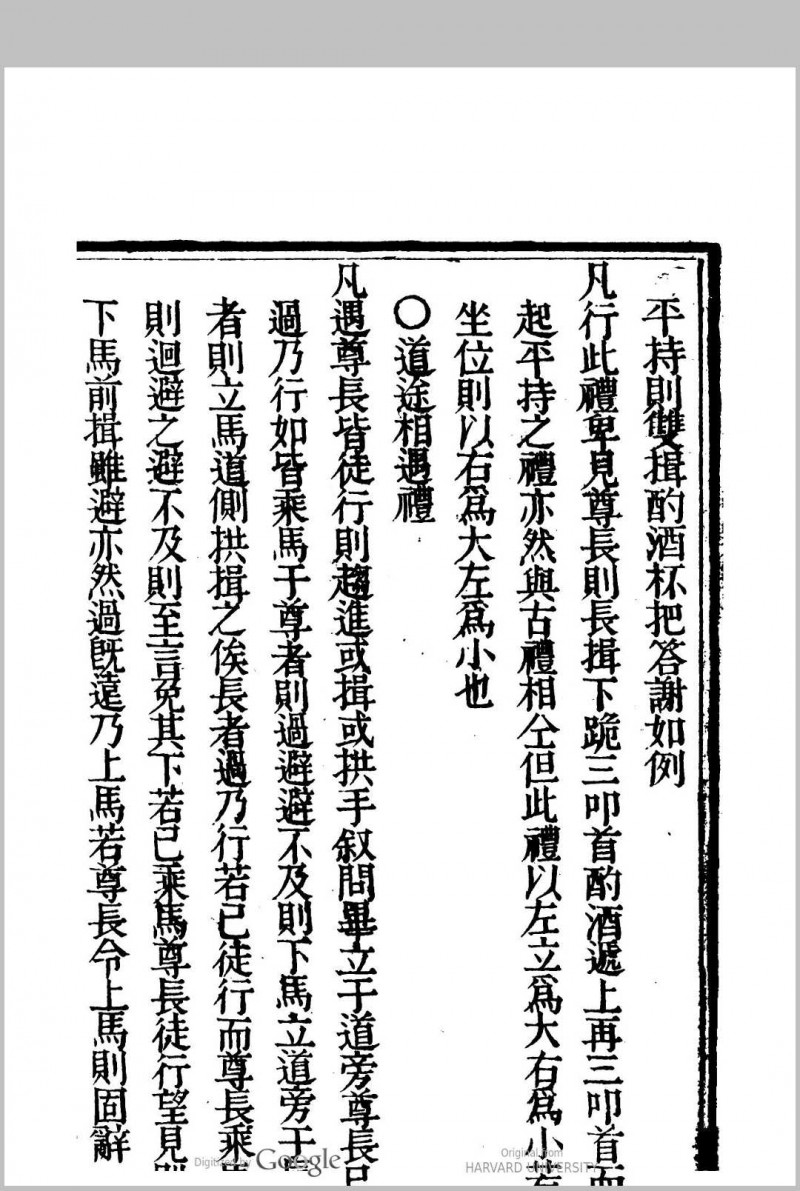 平持則雙揖酌酒杯把答謝如例
凡行此禮卑見尊長則長揖下跪三叩首酌酒遞上再三叩首而
起平持之禮亦然與古禮相仝但此禮以左立爲大右爲小若
坐位則以右爲大左爲小也
〇道途相遇禮
凡遇尊長皆徒行則趨進或揖或拱手叙問畢立于道旁尊長已
過乃行如皆乘馬于尊者則過避避不及則下馬立道旁于
者則立馬道側拱揖之俟長者過乃行若已徒行而尊長乘
則迴避之避不及則至言免其下若已乘馬尊長徒行望見則
下馬前揖雖避亦然過旣遠乃上馬若尊長令上馬則固辭
Digitized by Google
Original from
HARVARD UNIVERSITY